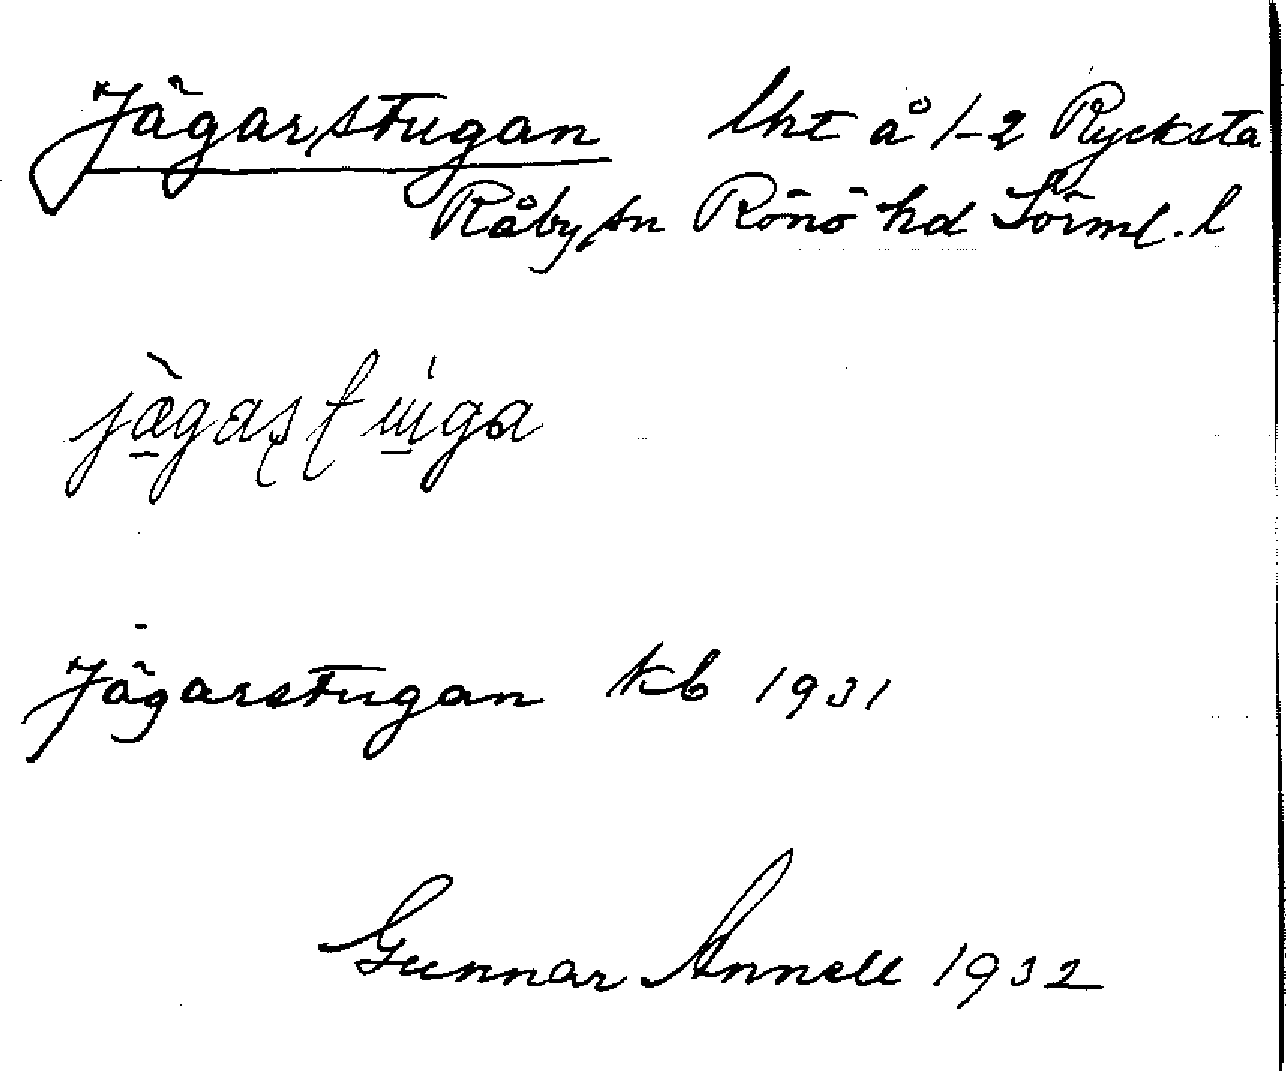 Jägarstugan lht å 1-2 Rycksta
Råby sn Rönö hd Sörml. l
Jägarstugan kb 1931
Gunnar Annell 1932